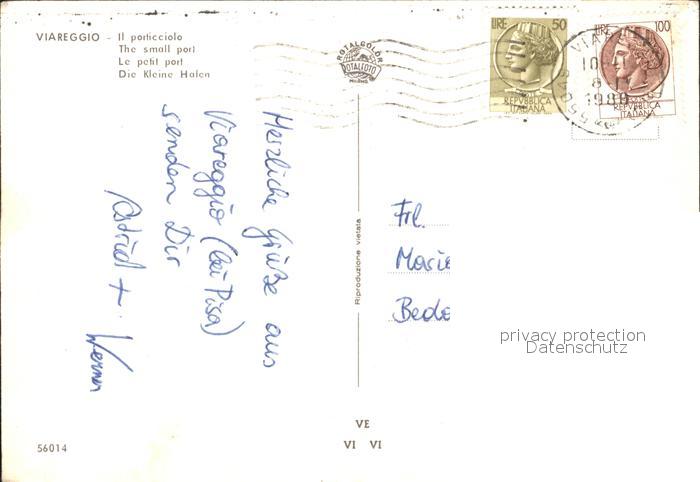 VIAREGGIO - Il porticciolo
The small port
Le petit port
Die Kleine Hafen
ROTALCOLOR
ROTALFOTO
MILANO
LIRE 50
REPVBBLICA
ITALIANA
LIRE 100
REPVBBLICA
ITALIANA
10
8
1980
Herzliche Grüße aus
Viareggio (bei Pisa)
senden Dir
Astrid +
Werner
Riproduzione vietata
Frl.
Marie
Bede
privacy protection
Datenschutz
VE
VI VI
56014